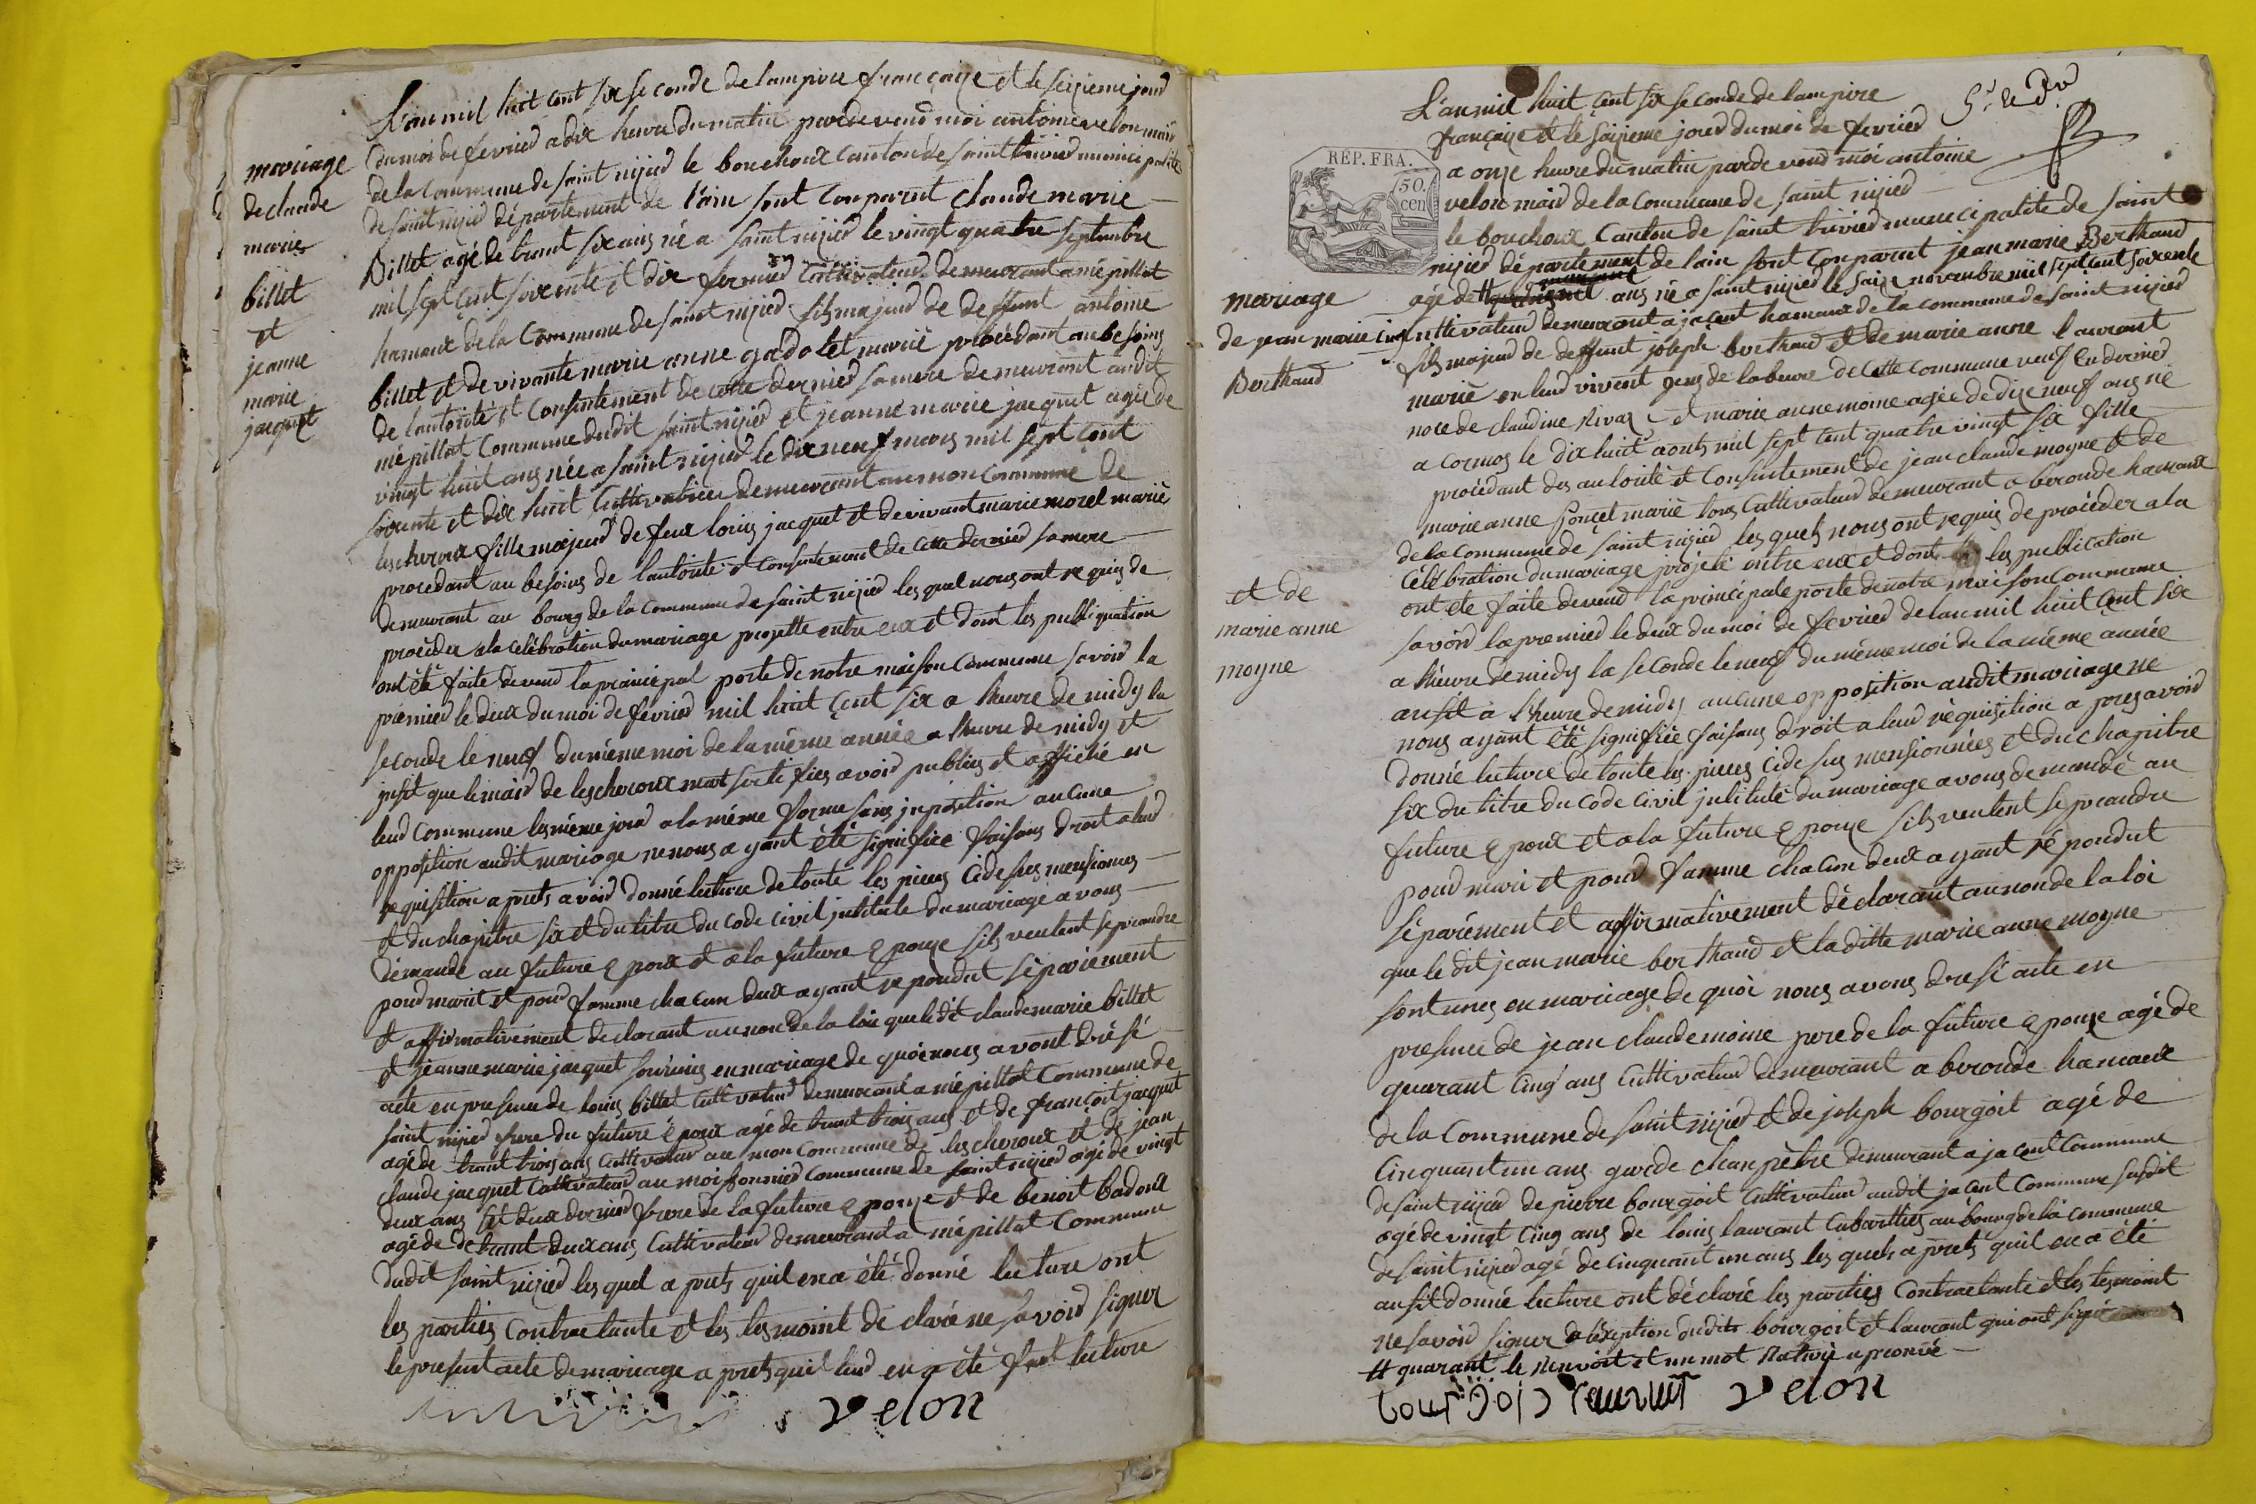 mariage
de claude
marie
billet
et
jeanne
marie
jacquet
L'an mil huit cent six seconde de lampire francaise et le seizieme jour
du moi de fevrier a dix heure du matin pardevend moi antoine velon maire
de la commune de saint nizier le bouchoux canton de saint trivier municipalité
de saint nizier département de l'ain sont conparut claude marie
Billet agé de trant six ans né a saint nizier le vingt quatre septembre
mil sept cent soixente et dix fermier cultivateur demeurant a mépillat
hameaux de la commune de saint nizier fils majeur de deffunt antoine
billet et de vivante marie anne gadolet marié procédant au besoins
de lautorité et consentement de cette dernier sa mere demeurant audit
mépillat commune dudit saint nizier et jeanne marie jacquet agée de
vingt huit ans née a saint nizier le dix neuf mars mil sept cent
soixente et dix huit cultivatrice demeurant au mon commune de
lescheroux fille majeur de feux louis jacquet et de vivant marie morel marié
procédant au besoins de lautorité et consentement de cette dernier sa mere
demeurant au bourg de la commune de saint nizier les quel nous ont requis de
procéder a la célébration du mariage projetté entre eux et dont les publiquation
ont été faite devend la principal porte de notre maison commune savoir la
premier le deux du moi de fevrier mil huit cent six a lheure de midy la
seconde le neuf du méme moi de la méme année a lheure de midy et
insit que le maire de lescheroux mat sertifies avoir publies et affiché en
leur commune les méme jour a la méme forme sans inposition aucune
opposition audit mariage ne nous ayant été signifiée faisans droit a leur
requisition a prets avoir donné lecture de toute les pieces cidesus mensiones
et du chapitre six et du titre du code civil intitule du mariage avons
démande au future epoux et a la future epouze sils veulent se prandre
pour marit et pour famme chacun deux ayant repondut séparement
et affirmativement declarant au non de la loi que ledit claude marie billet
et jeanne marie jacquet son unis en mariage de quoi nous avont drésé
acte en presence de louis billet cultivateur demeurant a mépillat commune de
saint nizier frere du future époux agé de trant trois ans et de françoit jacquet
agé de trant trois ans cultivateur au mon commune de lescheroux et de jean
claude jacquet cultivateur au moissonnier commune de saint nizier agé de vingt
deux ans les deux dernier frere de la future epouze et de benoit badoux
agé de trant deux ans cultivateur demeurant a mépillat commune
dudit saint nizier les quel a prets quil en a été donné lecture ont
les parties contractante et les temoint declaré ne savoir signer
le present acte de mariage a prets quil leur en a été fait lecture
velon
5e 2e dr
REP. FRA.
50.
cen
mariage
de jean marie
Berthaud
et de
marie anne
moyne
L'an mil huit cent six seconde de lampire
française et le saizieme jour du moi de fevrier
a onze heure du matin pardevend moi antoine
velon maire de la commune de saint nizier
le bouchoux canton de saint trivier municipalité de saint
nizier département de lain sont conparut jean marie Berthaud
agé de # ans né a saint nizier le saize novembre mil sept cent soixente
cinq cultivateur demeurant a jacent hameaux de la commune de saint nizier
fils majeur de deffunt joseph berthaud et de marie anne laurant
marié en leur vivent gens de labeure de cette commune veuf en dernier
noce de claudine Rivaz et marie anne moine agée de dix neuf ans né
a cormoz le dix huit aouts mil sept cent quatre vingt six fille
procédant des autorité et consentement de jean claude moyne et de
marie anne ponçet marié tous cultivateur demeurant a beronde hamaux
de la commune de saint nizier les quels nous ont requis de procéder a la
célébration du mariage projeté entre eux et dont les publication
ont eté faite devend la principale porte de notre maison commune
savoir la premier le deux du moi de fevrier de lan mil huit cent six
a lheure de midy la seconde le neuf du méme moi de la méme année
ausit a lheure de midy aucune opposition audit mariage ne
nous ayant été signifiée faisans droit a leur réquisition a pres avoir
donné lecture de toute les pieces cidesus mensionnées et du chapitre
six du titre du code civil intitulé du mariage avons demandé au
future epoux et a la future epouze sils veulent se prandre
pour mari et pour famme chacun deux ayant répondut
séparément et affirmativement déclarant au non de la loi
que le dit jean marie berthaud et la ditte marie anne moyne
sont unes en mariage de quoi nous avons dresé acte en
presence de jean claude moine pere de la future epouze agé de
quarant cinq ans cultivateur demeurant a beronde hamaux
de la commune de saint nizier et de joseph bourgoit agé de
cinquant un ans garde chanpètre demeurant a jacent commune
de saint nizier de pierre bourgoit cultivateur audit jacent commune susdit
agé de vingt cinq ans de louis laurant cabarttier au bourg de la commune
de saint nizier agé de cinquant un ans les quels a prets quil en a été
ausit donné lecture ont déclaré les parties contractante et les temoint
ne savoir signer a lexeption dudits bourgoit et laurant qui ont signé
# quarant le renvoit et un mot raturé aprouvé
bourgois laurant velon